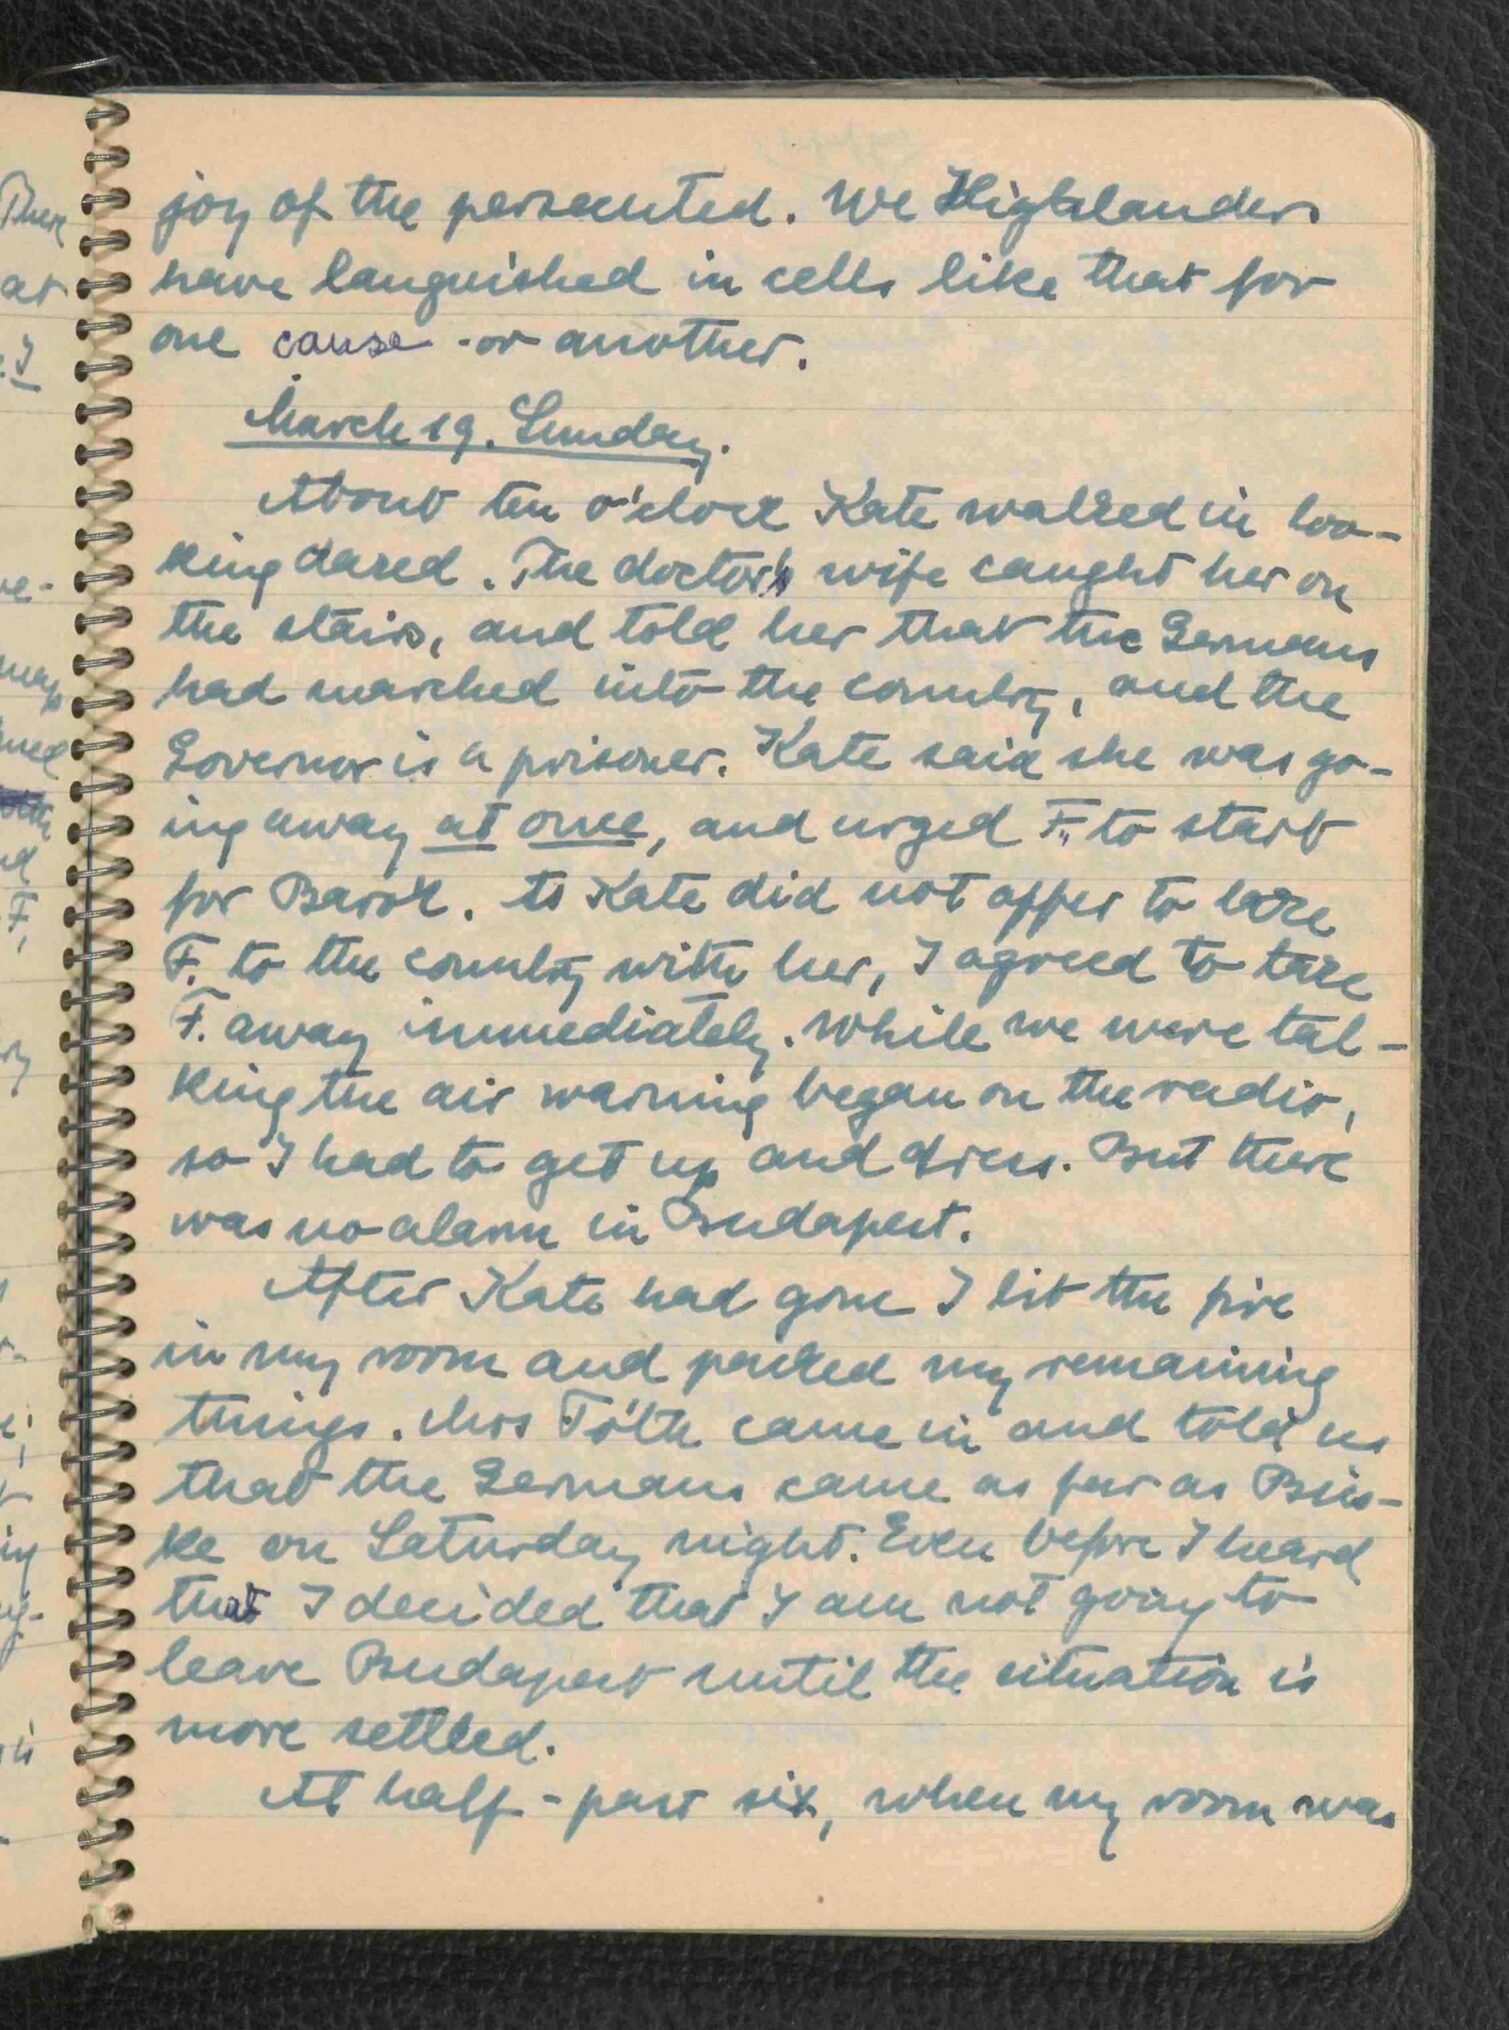 joy of the persecuted. We Highlanders
have languished in cells like that for
one cause - or another.
March 19. Sunday.
About ten o'clock Kate walked in loo-
king dazed. The doctor's wife caught her on
the stairs, and told her that the Germans
had marched into the country, and the
Governor is a prisoner. Kate said she was go-
ing away at once, and urged F. to start
for Barók. As Kate did not offer to take
F. to the country with her, I agreed to take
F. away immediately. While we were tal-
king the air warning began on the radio,
so I had to get up and dress. But there
was no alarm in Budapest.
After Kate had gone I lit the fire
in my room and packed my remaining
things. Mrs Tóth came in and told us
that the Germans came as far as Bics-
ke on Saturday night. Even before I heard
that I decided that I am not going to
leave Budapest until the situation is
more settled.
At half-past six, when my room was